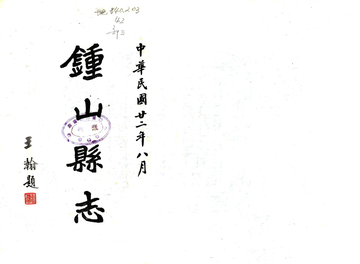 中華民國廿二年八月
鍾山縣志
王瀚題